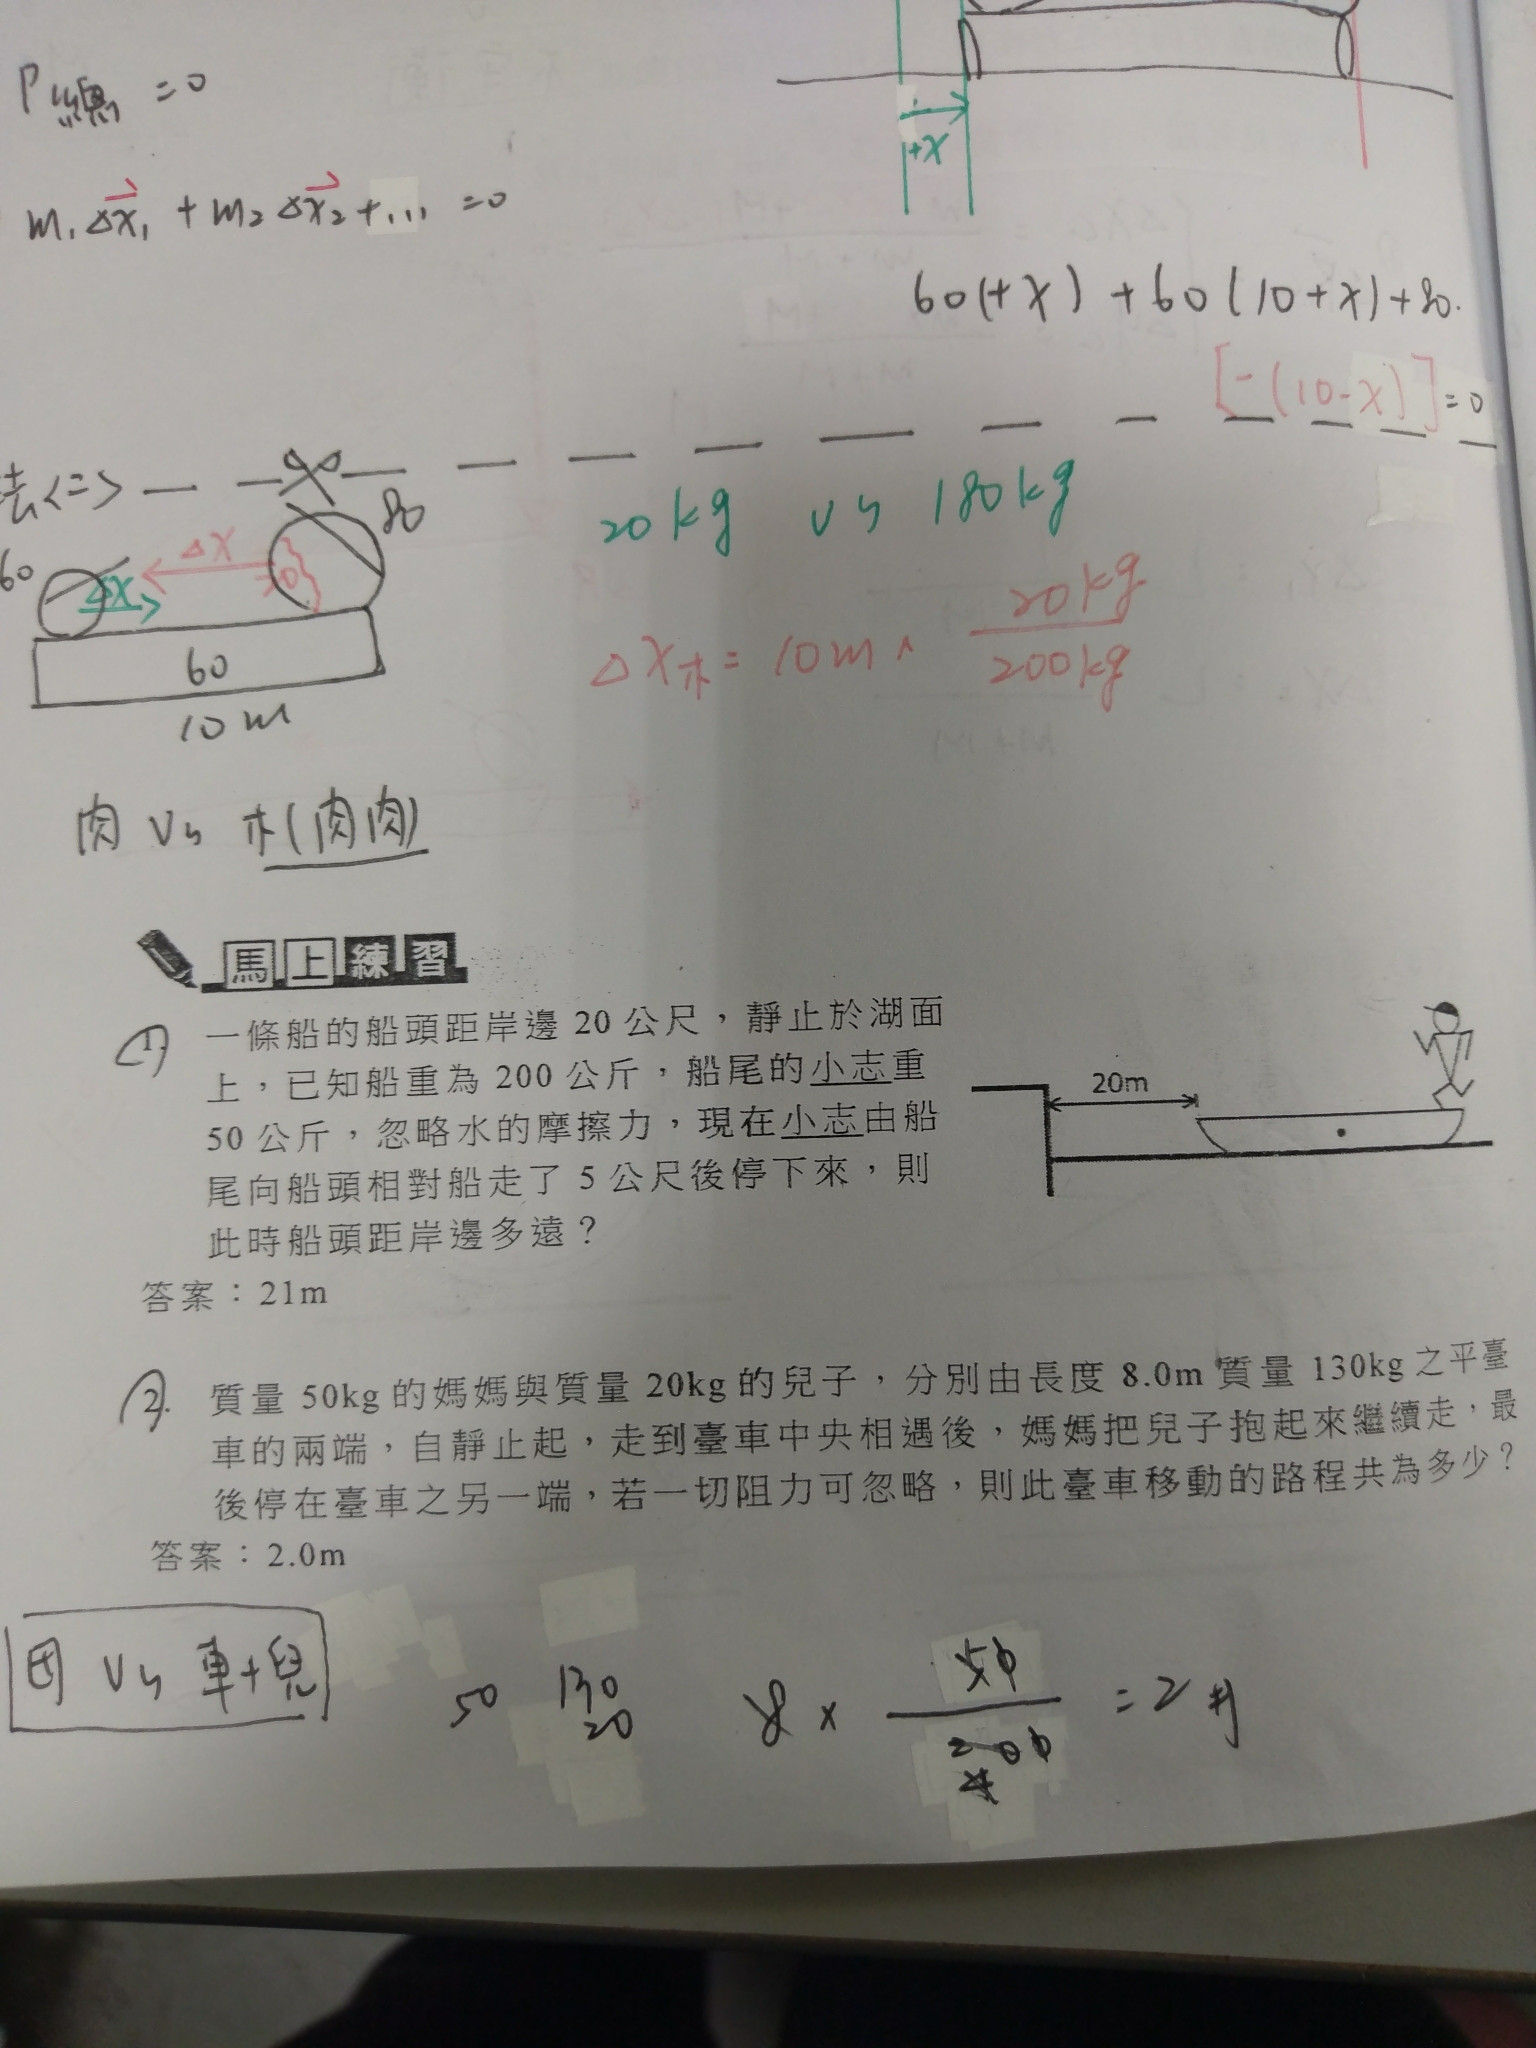 P總 = 0
+x
m₁Δx₁ + m₂Δx₂ + ... = 0
60(+x) + 60(10+x) + 80.
[-(10-x)] = 0
法<二>
80
20kg vs 180kg
60
Δx
Δx
Δx木 = 10m × 20kg/200kg
60
10m
肉 vs 木(肉肉)
馬上練習
1) 一條船的船頭距岸邊 20 公尺，靜止於湖面
上，已知船重為 200 公斤，船尾的小志重
50 公斤，忽略水的摩擦力，現在小志由船
尾向船頭相對船走了 5 公尺後停下來，則
此時船頭距岸邊多遠？
20m
答案：21m
2. 質量 50kg 的媽媽與質量 20kg 的兒子，分別由長度 8.0m 質量 130kg 之平臺
車的兩端，自靜止起，走到臺車中央相遇後，媽媽把兒子抱起來繼續走，最
後停在臺車之另一端，若一切阻力可忽略，則此臺車移動的路程共為多少？
答案：2.0m
vs 車+兒
50 130 8 × 50/200 = 2 #
20
4